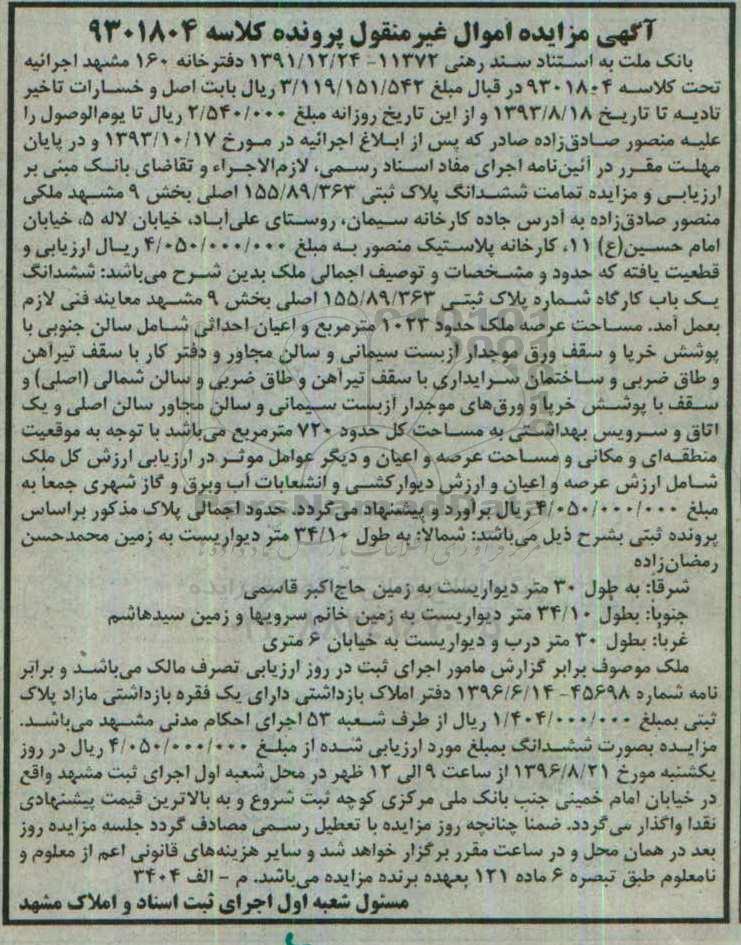 آگهی مزایده اموال غیرمنقول پرونده کلاسه ۹۳۰۱۸۰۴
بانک ملت به استناد سند رهنی ۱۱۳۷۲- ۱۳۹۱/۱۲/۲۴ دفترخانه ۱۶۰ مشهد اجرائیه
تحت کلاسه ۹۳۰۱۸۰۴ در قبال مبلغ ۳/۱۱۹/۱۵۱/۵۴۲ ریال بابت اصل و خسارات تاخیر
تادیه تا تاریخ ۱۳۹۳/۸/۱۸ و از این تاریخ روزانه مبلغ ۲/۵۴۰/۰۰۰ ریال تا یوم‌الوصول را
علیه منصور صادق‌زاده صادر که پس از ابلاغ اجرائیه در مورخ ۱۳۹۳/۱۰/۱۷ و در پایان
مهلت مقرر در آئین‌نامه اجرای مفاد اسناد رسمی، لازم‌الاجراء و تقاضای بانک مبنی بر
ارزیابی و مزایده تمامت ششدانگ پلاک ثبتی ۱۵۵/۸۹/۳۶۳ اصلی بخش ۹ مشهد ملکی
منصور صادق‌زاده به آدرس جاده کارخانه سیمان، روستای علی‌آباد، خیابان لاله ۵، خیابان
امام حسین(ع) ۱۱، کارخانه پلاستیک منصور به مبلغ ۴/۰۵۰/۰۰۰/۰۰۰ ریال ارزیابی و
قطعیت یافته که حدود و مشخصات و توصیف اجمالی ملک بدین شرح می‌باشد: ششدانگ
یک باب کارگاه شماره پلاک ثبتی ۱۵۵/۸۹/۳۶۳ اصلی بخش ۹ مشهد معاینه فنی لازم
بعمل آمد. مساحت عرصه ملک حدود ۱۰۲۳ مترمربع و اعیان احداثی شامل سالن جنوبی با
پوشش خرپا و سقف ورق موجدار آزبست سیمانی و سالن مجاور و دفتر کار با سقف تیرآهن
و طاق ضربی و ساختمان سرایداری با سقف تیرآهن و طاق ضربی و سالن شمالی (اصلی) و
سقف با پوشش خرپا و ورق‌های موجدار آزبست سیمانی و سالن مجاور سالن اصلی و یک
اتاق و سرویس بهداشتی به مساحت کل حدود ۷۲۰ مترمربع می‌باشد با توجه به موقعیت
منطقه‌ای و مکانی و مساحت عرصه و اعیان و دیگر عوامل موثر در ارزیابی ارزش کل ملک
شامل ارزش عرصه و اعیان و ارزش دیوارکشی و انشعابات آب وبرق و گاز شهری جمعا به
مبلغ ۴/۰۵۰/۰۰۰/۰۰۰ ریال برآورد و پیشنهاد می‌گردد. حدود اجمالی پلاک مذکور براساس
پرونده ثبتی بشرح ذیل می‌باشد: شمالا: به طول ۳۴/۱۰ متر دیواریست به زمین محمدحسن
رمضان‌زاده
شرقا: به طول ۳۰ متر دیواریست به زمین حاج‌اکبر قاسمی
جنوبا: بطول ۳۴/۱۰ متر دیواریست به زمین خانم سرویها و زمین سیدهاشم
غربا: بطول ۳۰ متر درب و دیواریست به خیابان ۶ متری
ملک موصوف برابر گزارش مامور اجرای ثبت در روز ارزیابی تصرف مالک می‌باشد و برابر
نامه شماره ۴۵۶۹۸- ۱۳۹۶/۶/۱۴ دفتر املاک بازداشتی دارای یک فقره بازداشتی مازاد پلاک
ثبتی بمبلغ ۱/۴۰۴/۰۰۰/۰۰۰ ریال از طرف شعبه ۵۳ اجرای احکام مدنی مشهد می‌باشد.
مزایده بصورت ششدانگ بمبلغ مورد ارزیابی شده از مبلغ ۴/۰۵۰/۰۰۰/۰۰۰ ریال در روز
یکشنبه مورخ ۱۳۹۶/۸/۲۱ از ساعت ۹ الی ۱۲ ظهر در محل شعبه اول اجرای ثبت مشهد واقع
در خیابان امام خمینی جنب بانک ملی مرکزی کوچه ثبت شروع و به بالاترین قیمت پیشنهادی
نقدا واگذار می‌گردد. ضمنا چنانچه روز مزایده با تعطیل رسمی مصادف گردد جلسه مزایده روز
بعد در همان محل و در ساعت مقرر برگزار خواهد شد و سایر هزینه‌های قانونی اعم از معلوم و
نامعلوم طبق تبصره ۶ ماده ۱۲۱ بعهده برنده مزایده می‌باشد. م - الف ۳۴۰۴
مسئول شعبه اول اجرای ثبت اسناد و املاک مشهد